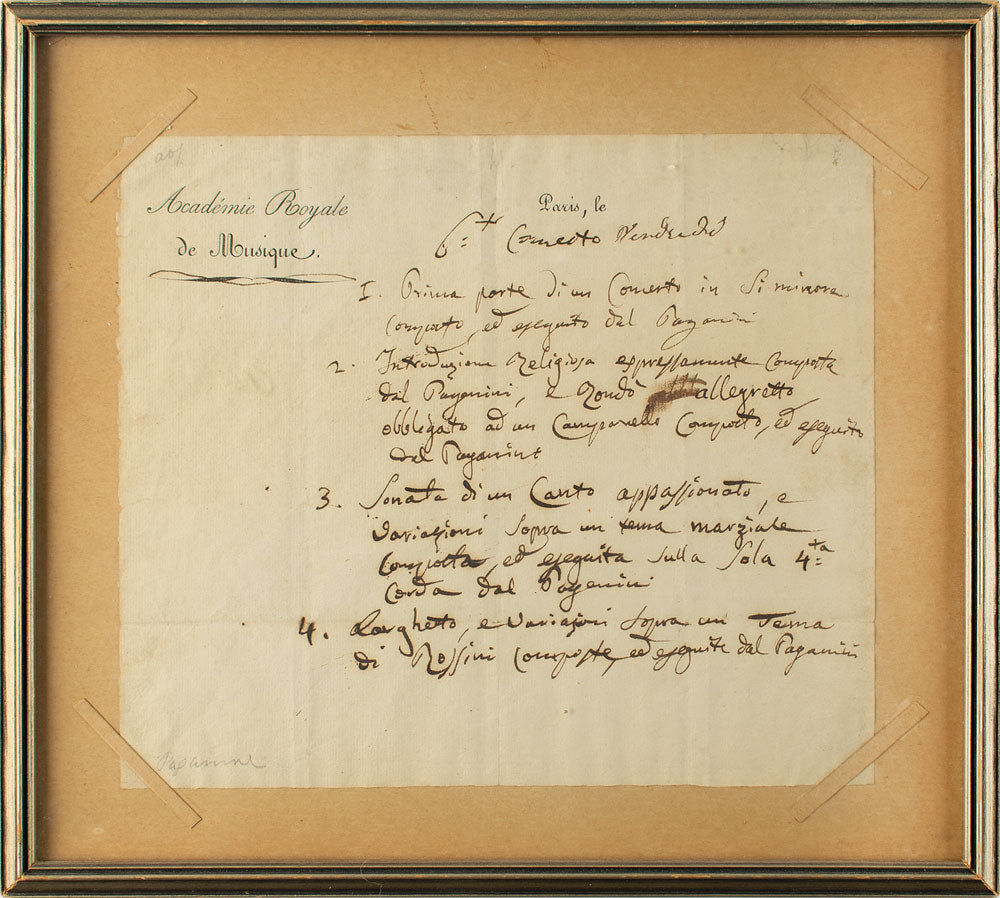 Académie Royale
de Musique.
Paris, le
6.= Concerto Venerdì
1. Prima parte di un Concerto in Si minore
Composto, ed eseguito dal Paganini
2. Introduzione Religiosa espressamente Composta
dal Paganini, e Rondò allegretto
obbligato ad un Campanello Composto, ed eseguito
dal Paganini
3. Sonata di un Canto appassionato, e
Variazioni Sopra un tema marziale
Composta, ed eseguita sulla Sola 4.ta
Corda dal Paganini
4. Larghetto, e Variazioni Sopra un Tema
di Rossini Composte, ed eseguite dal Paganini
Paganini